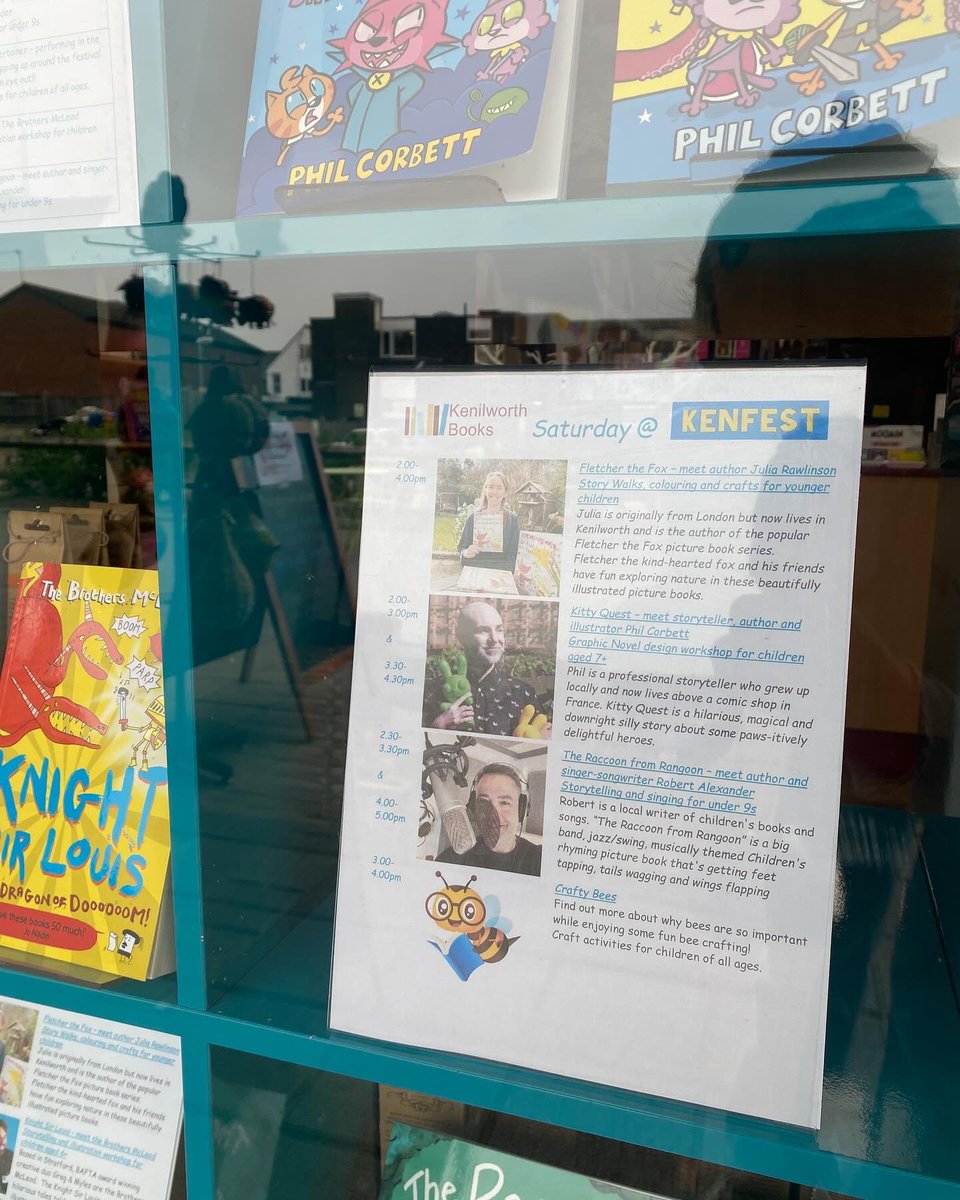 under 9s.
performing in the
pping up around the festival
n eye out!
s for children of all ages.
The Brothers McLeod
tration workshop for children
goon - meet author and singer-
ng for under 9s
PHIL CORBETT
PHIL CORBETT
Kenilworth
Books
Saturday @
KENFEST
2.00-
4.00pm
Fletcher the Fox – meet author Julia Rawlinson
Story Walks, colouring and crafts for younger
children
Julia is originally from London but now lives in
Kenilworth and is the author of the popular
Fletcher the Fox picture book series.
Fletcher the kind-hearted fox and his friends
have fun exploring nature in these beautifully
illustrated picture books.
2.00-
3.00pm
&
3.30-
4.30pm
Kitty Quest – meet storyteller, author and
illustrator Phil Corbett
Graphic Novel design workshop for children
aged 7+
Phil is a professional storyteller who grew up
locally and now lives above a comic shop in
France. Kitty Quest is a hilarious, magical and
downright silly story about some paws-itively
delightful heroes.
2.30-
3.30pm
&
4.00-
5.00pm
The Raccoon from Rangoon – meet author and
singer-songwriter Robert Alexander
Storytelling and singing for under 9s
Robert is a local writer of children's books and
songs. "The Raccoon from Rangoon" is a big
band, jazz/swing, musically themed Children's
rhyming picture book that's getting feet
tapping, tails wagging and wings flapping
3.00-
4.00pm
Crafty Bees
Find out more about why bees are so important
while enjoying some fun bee crafting!
Craft activities for children of all ages.
The Brothers McL
BOOM
KNIGHT
IR LOUIS
DRAGON OF DOOOOOOM!
ve these books 50 much!"
Jo Nadin
Fletcher the Fox – meet author Julia Rawlinson
Story Walks, colouring and crafts for younger
children
Julia is originally from London but now lives in
Kenilworth and is the author of the popular
Fletcher the Fox picture book series.
Fletcher the kind-hearted fox and his friends
have fun exploring nature in these beautifully
illustrated picture books.
Knight Sir Louis – meet the Brothers McLeod
Storytelling and illustration workshop for
children aged 6+
Based in Stratford, BAFTA award winning
creative duo Greg & Myles are the Brothers
McLeod. The Knight Sir Loui
hilarious tales told
The